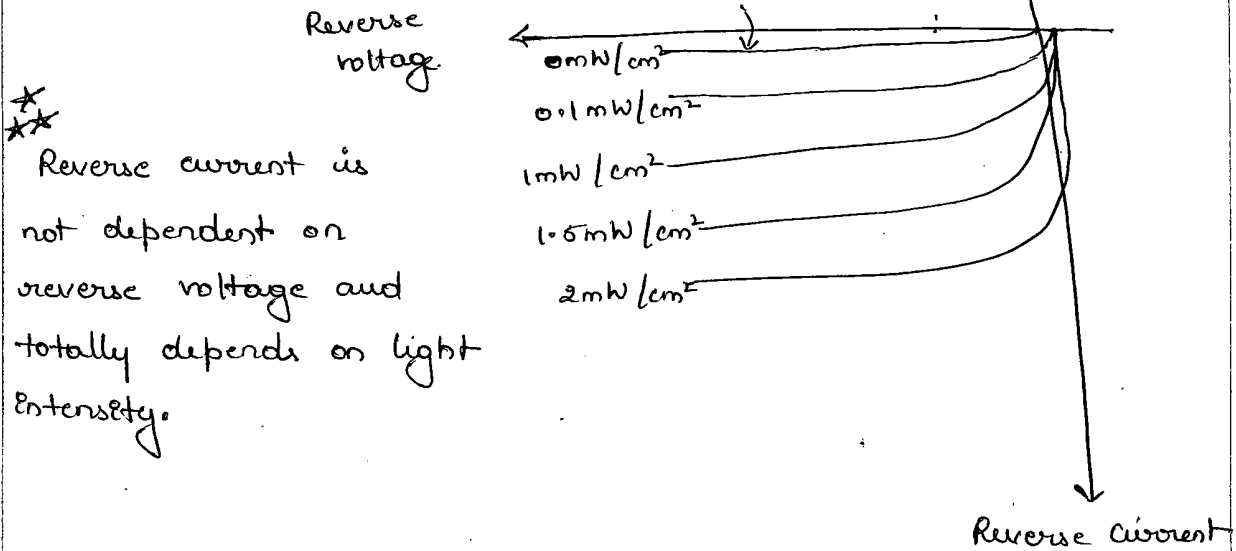 Reverse
voltage
0mW/cm²
0.1mW/cm²
1mW/cm²
1.5mW/cm²
2mW/cm²
Reverse current is
not dependent on
reverse voltage and
totally depends on light
intensity.
Reverse current